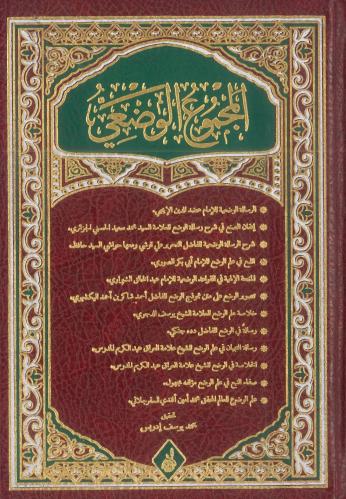 المجموع الوضعي
الرسالة الوضعية للإمام عضد الدين الإيجي.
إتقان الصنع في شرح رسالة الوضع للعلامة السيد محمد سعيد الحسني الجزائري.
شرح الرسالة الوضعية للفاضل النحرير علي قوشي ومعها حواشي السيد حافظ.
الفتح في علم الوضع للإمام أبي بكر الصوري.
المنحة الإلهية في القواعد الوضعية للإمام عبد الخالق الشبراوي.
تصوير الوضع على متن نموذج الوضع للفاضل أحمد شاكر بن أحمد
خلاصة علم الوضع للعلامة الشيخ يوسف الدجوي.
رسالة في الوضع للفاضل دده جنكي.
رسالة التبيان في علم الوضع للشيخ علامة العراق عبد الكريم المدرس.
الخلاصة في الوضع للشيخ علامة العراق عبد الكريم المدرس.
في علم الوضع مؤلفه مجهول.
علم الوضوع للعالم المحقق محمد أمين أفندي السفرجلاني.
تحقيق
محمد يوسف إدريس